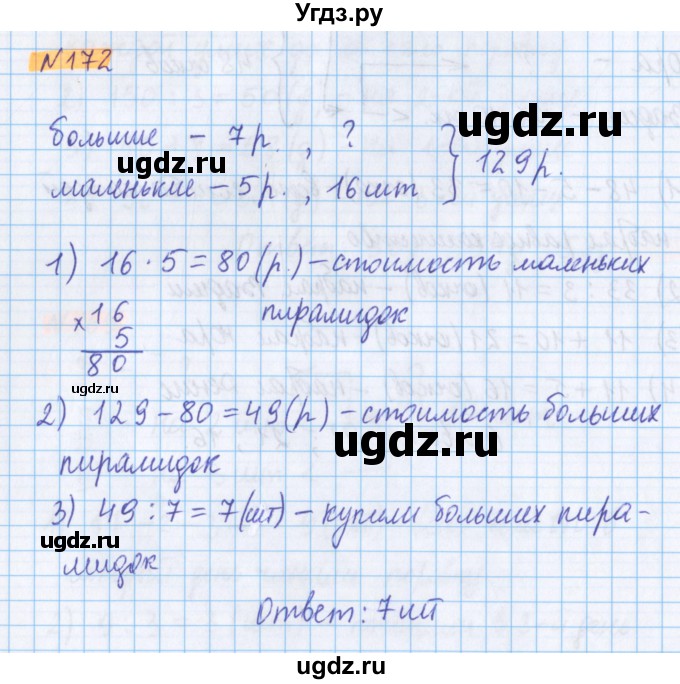 Угдз.ру
N172
ugdz.ru
большие – 7р. , ?
ugdz.ru
маленькие – 5р. , 16 шт } 129р.
ugdz.ru
1) 16 · 5 = 80 (р.) – стоимость маленьких
пирамидок
× 16
5
80
ugdz.ru
2) 129 – 80 = 49 (р) – стоимость больших
ugdz.ru
пирамидок
3) 49 : 7 = 7 (шт) – купили больших пира-
ugdz.ru
мидок
ugdz.ru
Ответ: 7 шт
ugdz.ru